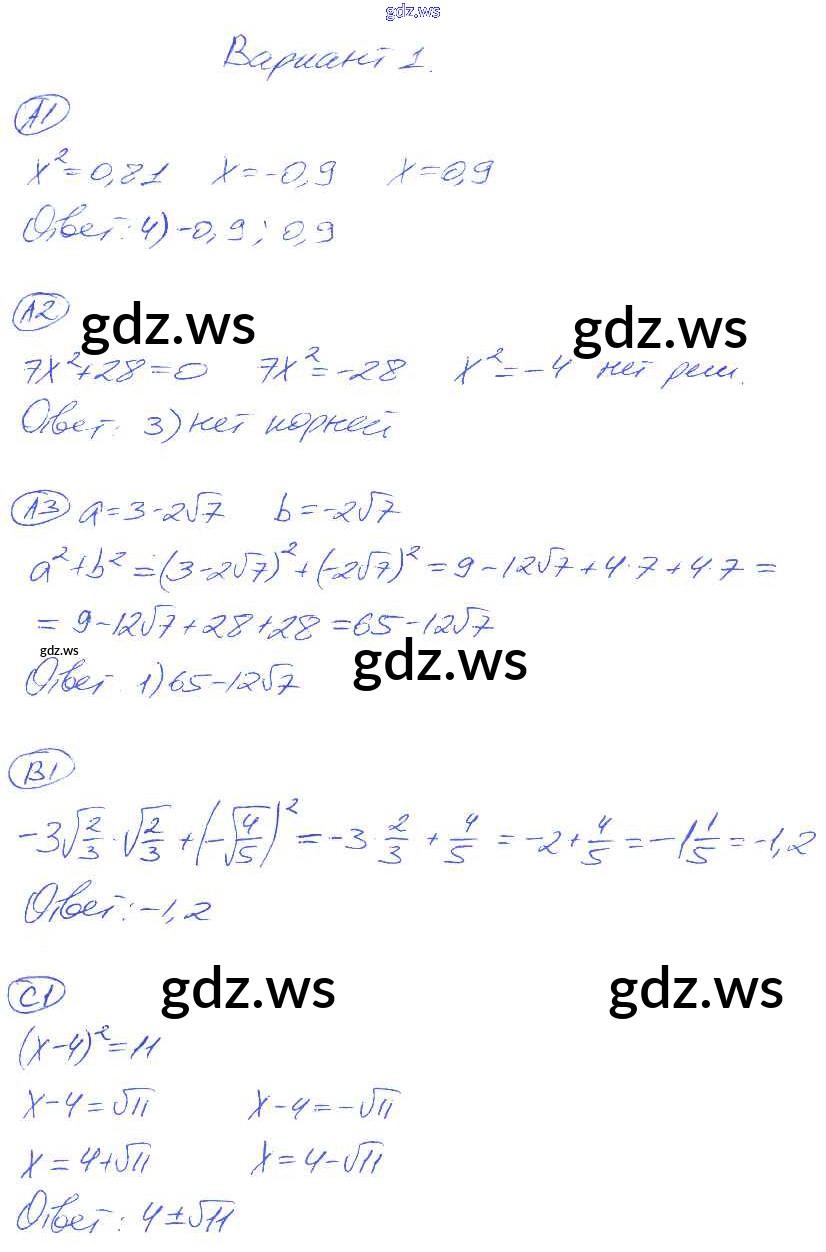 gdz.ws
Вариант 1.
А1
x²=0,81 x=-0,9 x=0,9
Ответ: 4) -0,9; 0,9
А2 gdz.ws gdz.ws
7x²+28=0 7x²=-28 x²=-4 нет реш.
Ответ: 3) нет корней
А3 a=3-2√7 b=-2√7
a²+b²=(3-2√7)²+(-2√7)²=9-12√7+4·7+4·7=
=9-12√7+28+28=65-12√7
gdz.ws gdz.ws
Ответ 1) 65-12√7
В1
-3√(2/3)·√(2/3)+(-√(4/5))²=-3·2/3+4/5=-2+4/5=-1 1/5=-1,2
Ответ: -1,2
С1 gdz.ws gdz.ws
(x-4)²=11
x-4=√11 x-4=-√11
x=4+√11 x=4-√11
Ответ: 4±√11